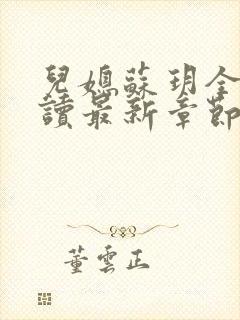 兒媳蘇玥全
讀最新章節
董雲正